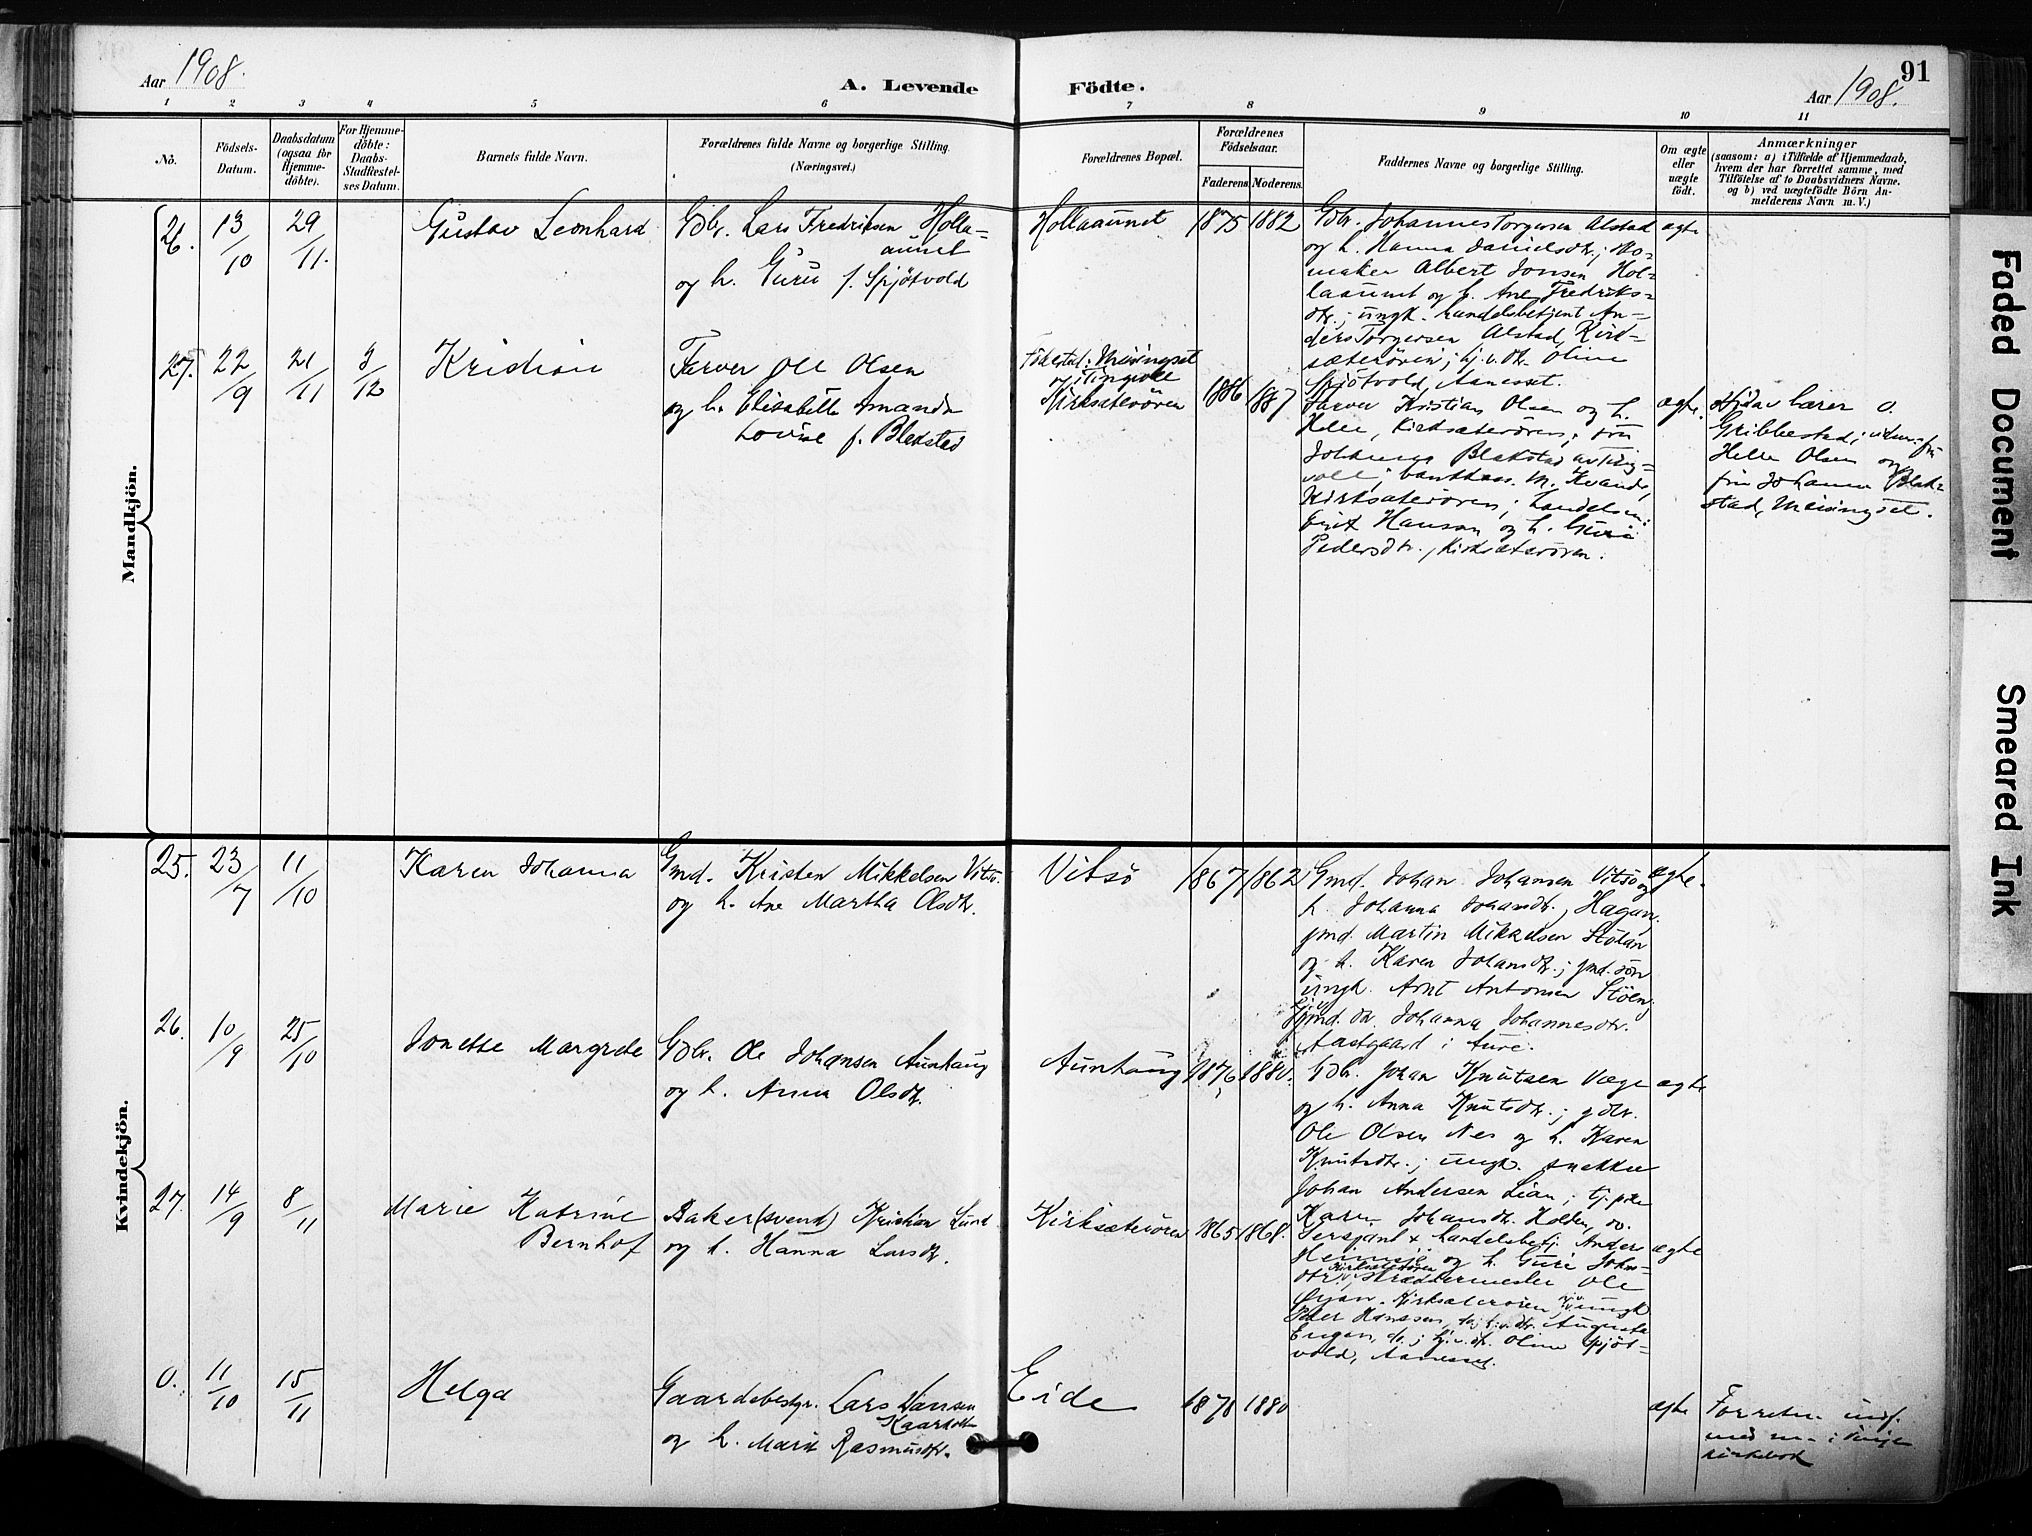 Aar 1908.
A. Levende
Födte.
91
Aar 1908.
1 2 3 4 5 6 7 8 9 10 11
No.
Födsels-
Datum.
Daabsdatum
(ogsaa for
Hjemme-
döbte).
For Hjemme-
döbte:
Daabs-
Stadfæstel-
ses Datum.
Barnets fulde Navn.
Forældrenes fulde Navne og borgerlige Stilling.
(Næringsvei.)
Forældrenes Bopæl.
Forældrenes
Födselsaar.
Faderens. Moderens.
Faddernes Navne og borgerlige Stilling.
Om ægte
eller
uægte
födt.
Anmærkninger
(saasom: a) i Tilfælde af Hjemmedaab,
hvem der har forrettet samme, med
Tilföielse af to Daabsvidners Navne.
og b) ved uægtefödte Börn An-
melderens Navn m. V.)
Mandkjön.
26. 13/10 29/11. Gustav Leonhard
Gbr. Lars Fredriksen Holla-
aunet
og h. Guru f. Spjötvold
Hollaaunet 1875 1882
Gbr. Johannes Torgersen Alstad
og h. Hanna Danielsdtr.; sko-
maker Albert Jonsen Hol-
laaunet og h. Ane Fredriks-
dtr.; ungk. handelsbetjent An-
ders Torgersen Alstad, Kirk-
sæterören; tj. v. dtr. Oline
Spjötvold, Aanesset.
ægte
27. 22/9 21/11 3/12 Kristian
Farver Ole Olsen
og h. Elisabeth Amanda
Lovise f. Blekstad
Meisingset
Tingvoll
Kirksæterören 1886 1887
Farver Kristian Olsen og h.
Helle, Kirksæterören; fru
Johanna Blakstad av Ting-
voll; M. Kvande,
Kirksæterören;
Hansen og h. Guri
Pedersdtr., Kirksæterören.
ægte.
Hjdav lærer O.
Gribbestad;
Helle Olsen og
fru Johanna Blak-
stad, Meisingset.
Kvindekjön.
25. 23/7 11/10 Karen Johanna
Gmd. Kristen Mikkelsen Vitsö
og h. Ane Martha Olsdtr.
Vitsö 1867 1862
Gmd. Johan Johansen Vitsö og
h. Johanna Johansdtr., Hagan;
gmd. Martin Mikkelsen Stölan
og h. Karen Johansdtr.; gmd. sön
ungk. Arnt Antonsen Stöen;
gmd. dtr. Johanna Johannesdtr.
Aastgaard i Aure.
ægte.
26. 10/9 25/10 Jonette Margrete
Gbr. Ole Johansen Aunhaug
og h. Anna Olsdtr.
Aunhaug 1876 1880.
Gbr. Johan Knutsen Vaage
og h. Anna Knutsdtr.; gbr.
Ole Olsen Nes og h. Karen
Knutsdtr.; ungk. snekker
Johan Andersen Lian; tj. pike
Karen Johansdtr. Holden,
ægte
27. 14/9 8/11 Marie Katrine
Bernhof
Baker(svend) Kristian Lund
og h. Hanna Larsdtr.
Kirksæterören 1865 1868.
Sersjant & handelsbetj. Anders
Heimsjö og h. Guri Johns-
dtr., Kirksæterören; skræddermester Ole
Kirksæterören; ungk.
Peter Hanssen, do; tj. v. dtr. Augusta
Engan, do.; tj. v. dtr. Oline Spjöt-
vold, Aanesset.
ægte
0. 11/10 15/11 Helga
Gaardsbestyr. Lars Hansen
og h. Marit Rasmusdtr.
Eide 1878 1880
ægte
indf.
med i
kirkebok
Faded Document
Smeared Ink